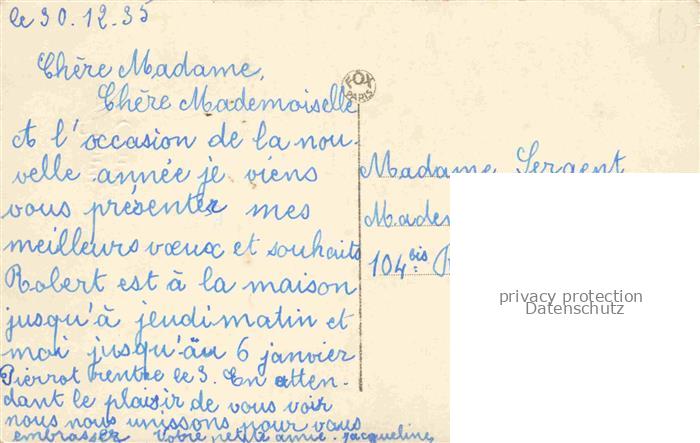 le 30.12.35
Chère Madame,
Chère Mademoiselle
A l'occasion de la nou-
velle année je viens
vous présenter mes
meilleurs vœux et souhaits
Robert est à la maison
jusqu'à jeudi matin et
moi jusqu'au 6 janvier
Pierrot rentre le 3. En atten-
dant le plaisir de vous voir
nous nous unissons pour vous
embrasser Votre petite amie. Jacqueline
FOX
PARIS
Madame Sergent
104 bis
privacy protection
Datenschutz